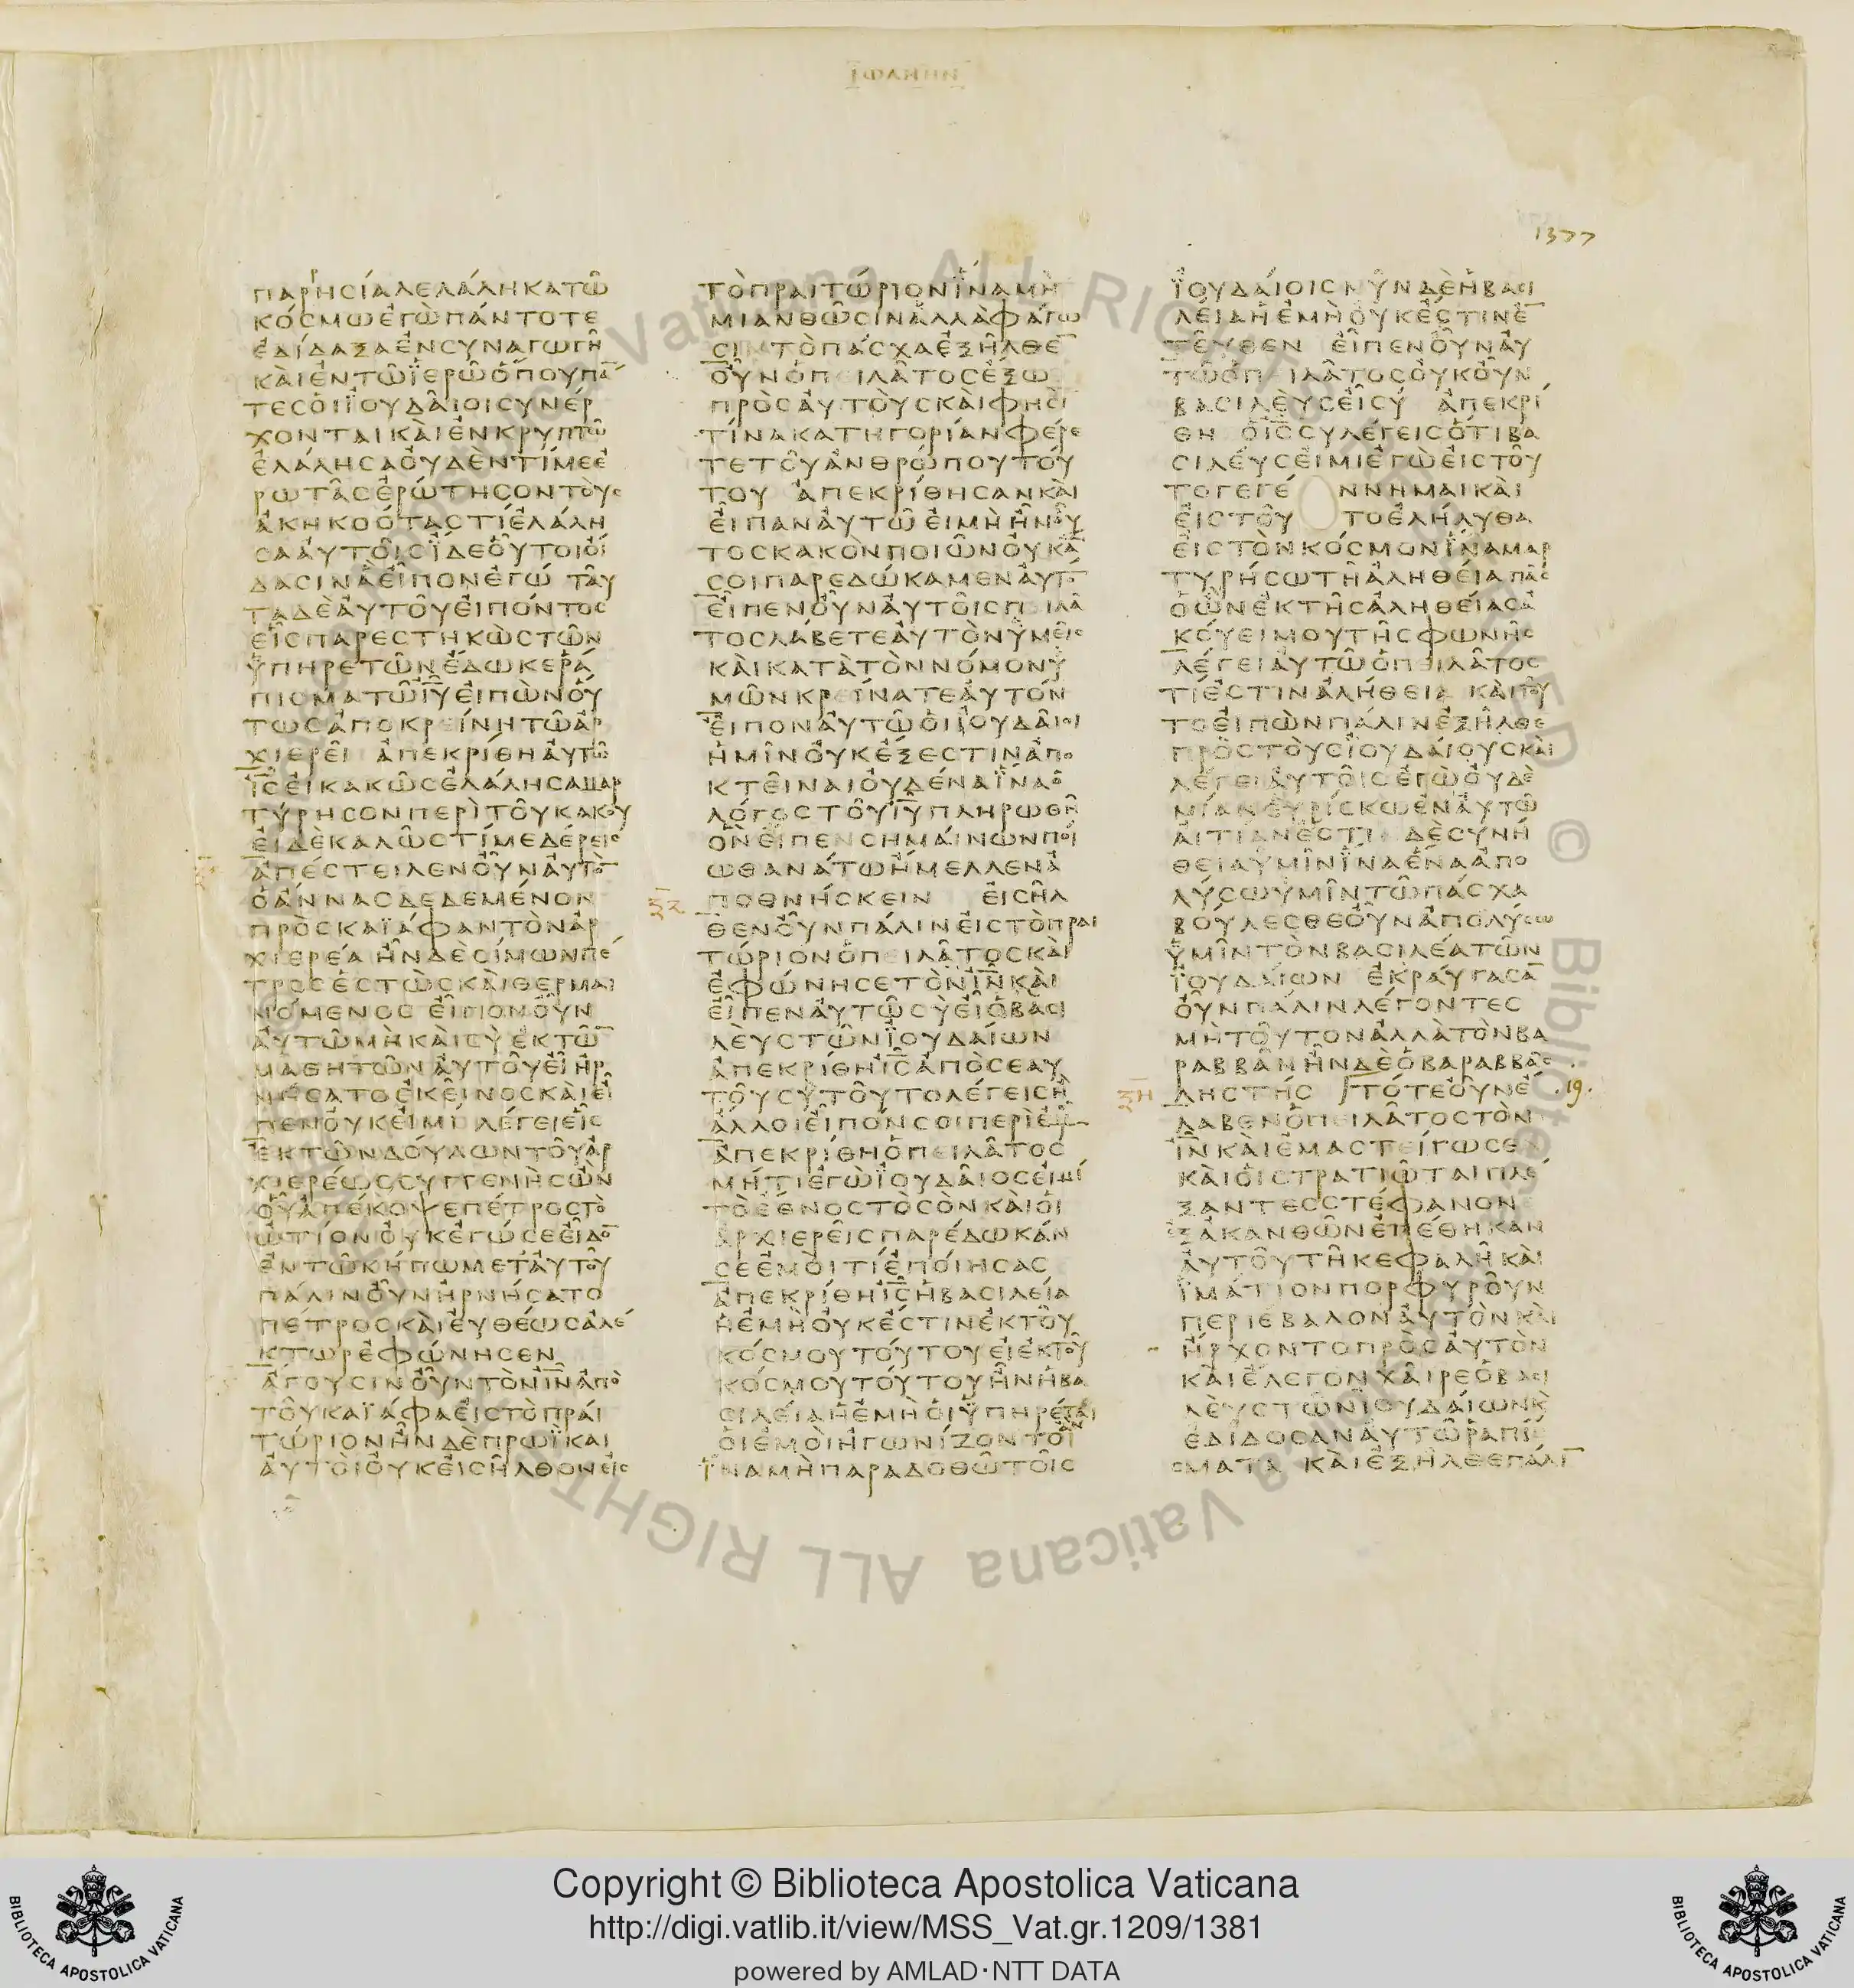 1377
ΠΑΡΗΣΙΑΛΕΛΑΛΗΚΑΤΩ
ΚΟΣΜΩΕΓΩΠΑΝΤΟΤΕ
ΕΔΙΔΑΞΑΕΝΣΥΝΑΓΩΓΗ
ΚΑΙΕΝΤΩΪΕΡΩΟΠΟΥΠᾹ
ΤΕΣΟΙΪΟΥΔΑΙΟΙΣΥΝΕΡ
ΧΟΝΤΑΙΚΑΙΕΝΚΡΥΠΤΩ
ΕΛΑΛΗΣΑΟΥΔΕΝΤΙΜΕΕ
ΡΩΤΑΣΕΡΩΤΗΣΟΝΤΟΥΣ
ΑΚΗΚΟΟΤΑΣΤΙΕΛΑΛΗ
ΣΑΑΥΤΟΙΣΪΔΕΟΥΤΟΙΟΙ
ΔΑΣΙΝΑΕΙΠΟΝΕΓΩ ΤΑΥ
ΤΑΔΕΑΥΤΟΥΕΙΠΟΝΤΟΣ
ΕΙΣΠΑΡΕΣΤΗΚΩΣΤΩΝ
ΥΠΗΡΕΤΩΝΕΔΩΚΕΡΑ
ΠΙΣΜΑΤΩΙ̅Υ̅ΕΙΠΩΝΟΥ
ΤΩΣΑΠΟΚΡΕΙΝΗΤΩΑΡ
ΧΙΕΡΕΙ ΑΠΕΚΡΙΘΗΑΥΤΩ
Ι̅Σ̅ΕΙΚΑΚΩΣΕΛΑΛΗΣΑΜΑΡ
ΤΥΡΗΣΟΝΠΕΡΙΤΟΥΚΑΚΟΥ
ΕΙΔΕΚΑΛΩΣΤΙΜΕΔΕΡΕΙΣ
ΑΠΕΣΤΕΙΛΕΝΟΥΝΑΥΤΟ̄
ΟΑΝΝΑΣΔΕΔΕΜΕΝΟΝ
ΠΡΟΣΚΑΪΑΦΑΝΤΟΝΑΡ
ΧΙΕΡΕΑ ΗΝΔΕΣΙΜΩΝΠΕ
ΤΡΟΣΕΣΤΩΣΚΑΙΘΕΡΜΑΙ
ΝΟΜΕΝΟΣ ΕΙΠΟΝΟΥΝ
ΑΥΤΩΜΗΚΑΙΣΥΕΚΤΩ̄
ΜΑΘΗΤΩΝΑΥΤΟΥΕΙ ΗΡ
ΝΗΣΑΤΟΕΚΕΙΝΟΣΚΑΙΕΙ
ΠΕΝΟΥΚΕΙΜΙ ΛΕΓΕΙΕΙΣ
ΕΚΤΩΝΔΟΥΛΩΝΤΟΥΑΡ
ΧΙΕΡΕΩΣΣΥΓΓΕΝΗΣΩΝ
ΟΥΑΠΕΚΟΨΕΠΕΤΡΟΣΤΟ
ΩΤΙΟΝΟΥΚΕΓΩΣΕΕΙΔΟ̄
ΕΝΤΩΚΗΠΩΜΕΤΑΥΤΟΥ
ΠΑΛΙΝΟΥΝΗΡΝΗΣΑΤΟ
ΠΕΤΡΟΣΚΑΙΕΥΘΕΩΣΑΛΕ
ΚΤΩΡΕΦΩΝΗΣΕΝ
ΑΓΟΥΣΙΝΟΥΝΤΟΝΙ̅Ν̅ΑΠΟ
ΤΟΥΚΑΪΑΦΑΕΙΣΤΟΠΡΑΙ
ΤΩΡΙΟΝΗΝΔΕΠΡΩΪΚΑΙ
ΑΥΤΟΙΟΥΚΕΙΣΗΛΘΟΝΕΙΣ
ΤΟΠΡΑΙΤΩΡΙΟΝΪΝΑΜΗ
ΜΙΑΝΘΩΣΙΝΑΛΛΑΦΑΓΩ
ΣΙΝΤΟΠΑΣΧΑΕΞΗΛΘΕ̄
ΟΥΝΟΠΕΙΛΑΤΟΣΕΞΩ
ΠΡΟΣΑΥΤΟΥΣΚΑΙΦΗΣΙ
ΤΙΝΑΚΑΤΗΓΟΡΙΑΝΦΕΡΕ
ΤΕΤΟΥΑΝΘΡΩΠΟΥΤΟΥ
ΤΟΥ ΑΠΕΚΡΙΘΗΣΑΝΚΑΙ
ΕΙΠΑΝΑΥΤΩΕΙΜΗΗΝΟΥ
ΤΟΣΚΑΚΟΝΠΟΙΩΝΟΥΚᾹ
ΣΟΙΠΑΡΕΔΩΚΑΜΕΝΑΥΤΟ̄
ΕΙΠΕΝΟΥΝΑΥΤΟΙΣΠΕΙΛΑ
ΤΟΣΛΑΒΕΤΕΑΥΤΟΝΥΜΕΙΣ
ΚΑΙΚΑΤΑΤΟΝΝΟΜΟΝΥ
ΜΩΝΚΡΕΙΝΑΤΕΑΥΤΟΝ
ΕΙΠΟΝΑΥΤΩΟΙΪΟΥΔΑΙΟΙ
ΗΜΙΝΟΥΚΕΞΕΣΤΙΝΑΠΟ
ΚΤΕΙΝΑΙΟΥΔΕΝΑΪΝΑΟ
ΛΟΓΟΣΤΟΥΙ̅Υ̅ΠΛΗΡΩΘΗ
ΟΝΕΙΠΕΝΣΗΜΑΙΝΩΝΠΟΙ
ΩΘΑΝΑΤΩΗΜΕΛΛΕΝΑ
ΠΟΘΝΗΣΚΕΙΝ ΕΙΣΗΛ
ΘΕΝΟΥΝΠΑΛΙΝΕΙΣΤΟΠΡΑΙ
ΤΩΡΙΟΝΟΠΕΙΛΑΤΟΣΚΑΙ
ΕΦΩΝΗΣΕΤΟΝΙ̅Ν̅ΚΑΙ
ΕΙΠΕΝΑΥΤΩΣΥΕΙΟΒΑΣΙ
ΛΕΥΣΤΩΝΪΟΥΔΑΙΩΝ
ΑΠΕΚΡΙΘΗΙ̅Σ̅ΑΠΟΣΕΑΥ
ΤΟΥΣΥΤΟΥΤΟΛΕΓΕΙΣΗ
ΑΛΛΟΙΕΙΠΟΝΣΟΙΠΕΡΙΕΜΟΥ
ΑΠΕΚΡΙΘΗΟΠΕΙΛΑΤΟΣ
ΜΗΤΙΕΓΩΪΟΥΔΑΙΟΣΕΙΜΙ
ΤΟΕΘΝΟΣΤΟΣΟΝΚΑΙΟΙ
ΑΡΧΙΕΡΕΙΣΠΑΡΕΔΩΚΑΝ
ΣΕΕΜΟΙΤΙΕΠΟΙΗΣΑΣ
ΑΠΕΚΡΙΘΗΙ̅Σ̅ΗΒΑΣΙΛΕΙΑ
ΗΕΜΗΟΥΚΕΣΤΙΝΕΚΤΟΥ
ΚΟΣΜΟΥΤΟΥΤΟΥΕΙΕΚΤΟΥ
ΚΟΣΜΟΥΤΟΥΤΟΥΗΝΗΒΑ
ΣΙΛΕΙΑΗΕΜΗΟΙΫΠΗΡΕΤΑΙ
ΟΙΕΜΟΙΗΓΩΝΙΖΟΝΤΟΑΝ
ΪΝΑΜΗΠΑΡΑΔΟΘΩΤΟΙΣ
ΪΟΥΔΑΙΟΙΣΝΥΝΔΕΗΒΑΣΙ
ΛΕΙΑΗΕΜΗΟΥΚΕΣΤΙΝΕ̄
ΤΕΥΘΕΝ ΕΙΠΕΝΟΥΝΑΥ
ΤΩΟΠΕΙΛΑΤΟΣΟΥΚΟΥΝ
ΒΑΣΙΛΕΥΣΕΙΣΥ ΑΠΕΚΡΙ
ΘΗ ΟΙ̅Σ̅ΣΥΛΕΓΕΙΣΟΤΙΒΑ
ΣΙΛΕΥΣΕΙΜΙΕΓΩΕΙΣΤΟΥ
ΤΟΓΕΓΕ ΝΝΗΜΑΙΚΑΙ
ΕΙΣΤΟΥ ΤΟΕΛΗΛΥΘΑ
ΕΙΣΤΟΝΚΟΣΜΟΝΪΝΑΜΑΡ
ΤΥΡΗΣΩΤΗΑΛΗΘΕΙΑΠΑΣ
ΟΩΝΕΚΤΗΣΑΛΗΘΕΙΑΣΑ
ΚΟΥΕΙΜΟΥΤΗΣΦΩΝΗΣ
ΛΕΓΕΙΑΥΤΩΟΠΕΙΛΑΤΟΣ
ΤΙΕΣΤΙΝΑΛΗΘΕΙΑ ΚΑΙΤΟΥ
ΤΟΕΙΠΩΝΠΑΛΙΝΕΞΗΛΘΕ
ΠΡΟΣΤΟΥΣΪΟΥΔΑΙΟΥΣΚΑΙ
ΛΕΓΕΙΑΥΤΟΙΣΕΓΩΟΥΔΕ
ΜΙΑΝΕΥΡΙΣΚΩΕΝΑΥΤΩ
ΑΙΤΙΑΝΕΣΤΙ ΔΕΣΥΝΗ
ΘΕΙΑΥΜΙΝΪΝΑΕΝΑΑΠΟ
ΛΥΣΩΥΜΙΝΤΩΠΑΣΧΑ
ΒΟΥΛΕΣΘΕΟΥΝΑΠΟΛΥΣΩ
ΥΜΙΝΤΟΝΒΑΣΙΛΕΑΤΩΝ
ΪΟΥΔΑΙΩΝ ΕΚΡΑΥΓΑΣᾹ
ΟΥΝΠΑΛΙΝΛΕΓΟΝΤΕΣ
ΜΗΤΟΥΤΟΝΑΛΛΑΤΟΝΒΑ
ΡΑΒΒΑΝΗΝΔΕΟΒΑΡΑΒΒΑΣ
ΛΗΣΤΗΣ ΤΟΤΕΟΥΝΕ .19.
ΛΑΒΕΝΟΠΕΙΛΑΤΟΣΤΟΝ
Ι̅Ν̅ΚΑΙΕΜΑΣΤΕΙΓΩΣΕΝ
ΚΑΙΟΙΣΤΡΑΤΙΩΤΑΙΠΛΕ
ΞΑΝΤΕΣΣΤΕΦΑΝΟΝΕ
ΞΑΚΑΝΘΩΝΕΠΕΘΗΚΑΝ
ΑΥΤΟΥΤΗΚΕΦΑΛΗΚΑΙ
ΪΜΑΤΙΟΝΠΟΡΦΥΡΟΥΝ
ΠΕΡΙΕΒΑΛΟΝΑΥΤΟΝΚΑΙ
ΗΡΧΟΝΤΟΠΡΟΣΑΥΤΟΝ
ΚΑΙΕΛΕΓΟΝΧΑΙΡΕΟΒΑΣΙ
ΛΕΥΣΤΩΝΪΟΥΔΑΙΩΝΚ
ΕΔΙΔΟΣΑΝΑΥΤΩΡΑΠΙ
ΣΜΑΤΑ ΚΑΙΕΞΗΛΘΕΠΑΛῙ
Copyright © Biblioteca Apostolica Vaticana
http://digi.vatlib.it/view/MSS_Vat.gr.1209/1381
powered by AMLAD·NTT DATA
BIBLIOTECA APOSTOLICA VATICANA
BIBLIOTECA APOSTOLICA VATICANA